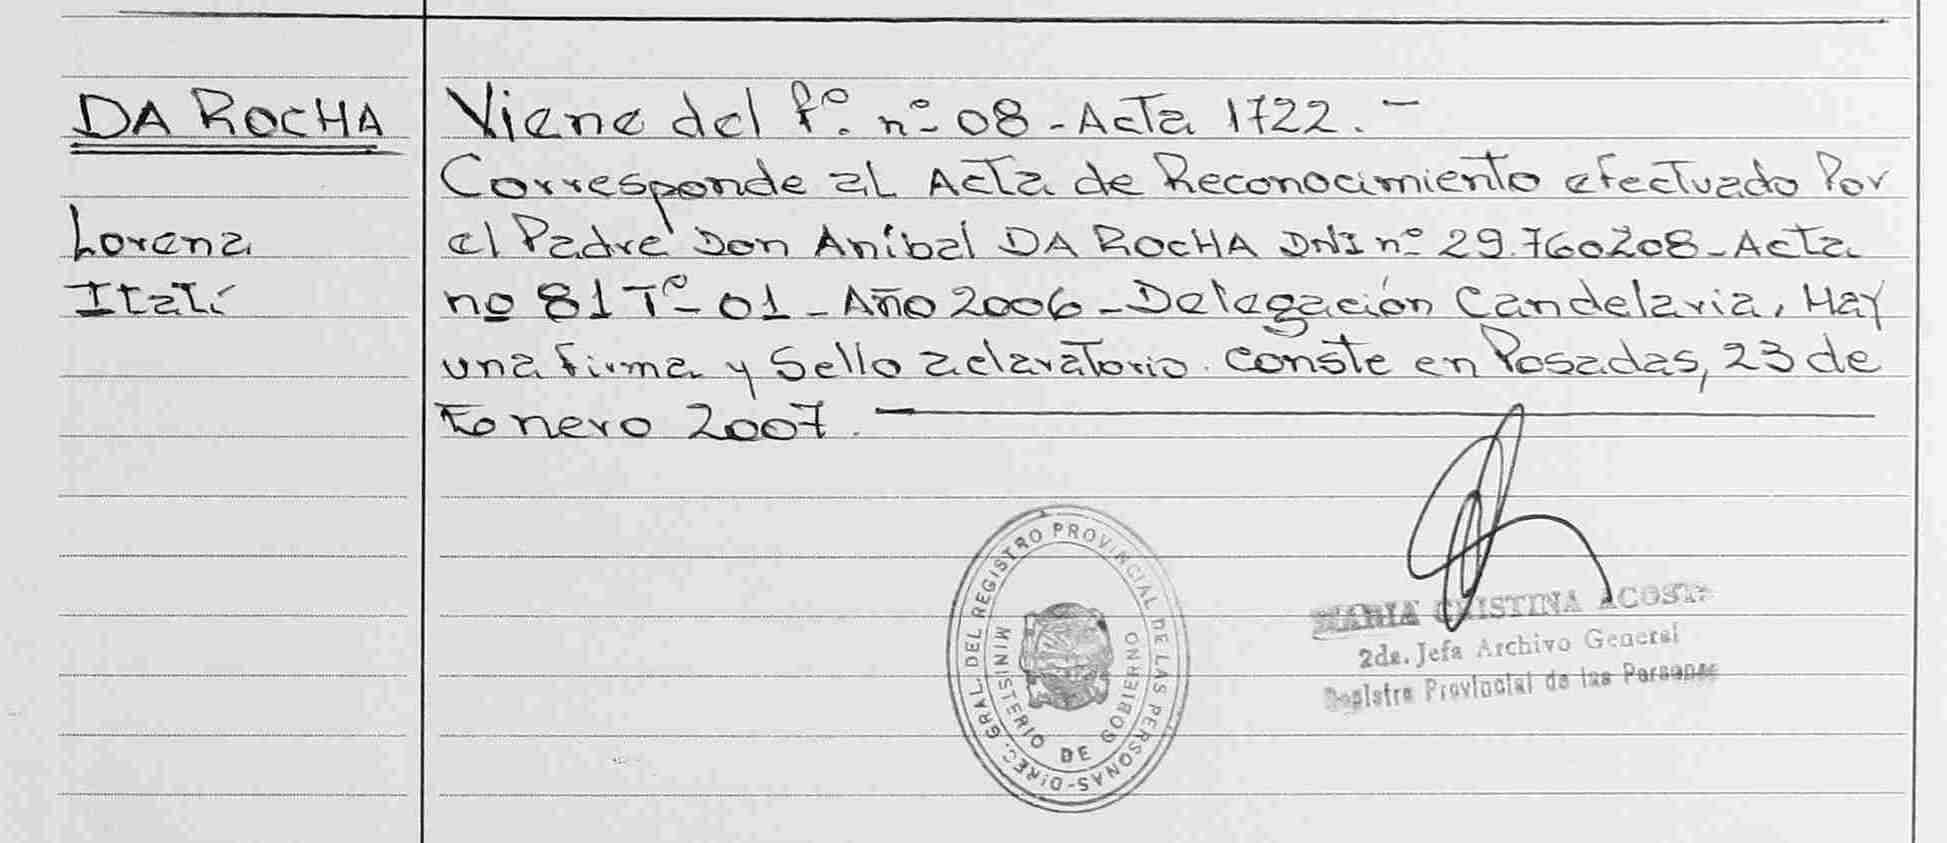 DA ROCHA
Lorena
Itatí
Viene del fº. nº 08 - Acta 1722. -
Corresponde al Acta de Reconocimiento efectuado Por
el Padre Don Aníbal DA ROCHA DNI nº 29.760208 - Acta
nº 81 Tº 01 - Año 2006 - Delegación Candelaria, Hay
una firma y Sello aclaratorio. Conste en Posadas, 23 de
Enero 2007.
DIREC. GRAL. DEL REGISTRO PROVINCIAL DE LAS PERSONAS-
MINISTERIO DE GOBIERNO
MARIA CRISTINA ACOSTA
2da. Jefa Archivo General
Registro Provincial de las Personas